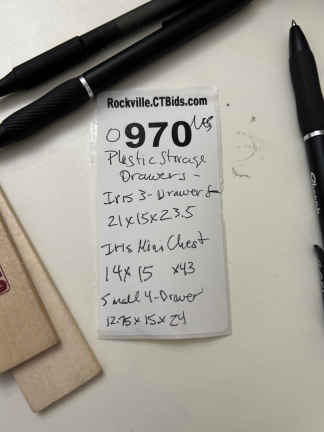 Rockville.CTBids.com
0970
Plastic Storage
Drawers -
Iris 3-Drawer
21x15x23.5
Iris Mini Chest
14x15 x43
Small 4-Drawer
12.75x15x24